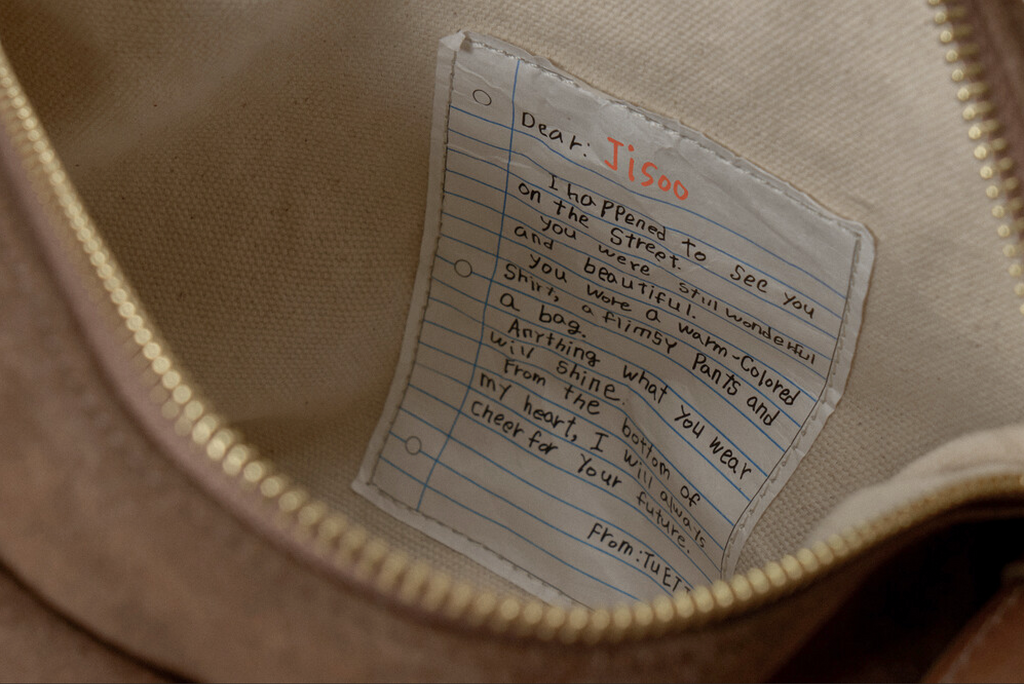 Dear: Jisoo
I happened to see you
on the street.
you were still wonderful
and beautiful.
you wore a warm-colored
shirt, a flimsy pants and
a bag.
Anything what you wear
will shine.
From the bottom of
my heart, I will always
cheer for your future.
From: